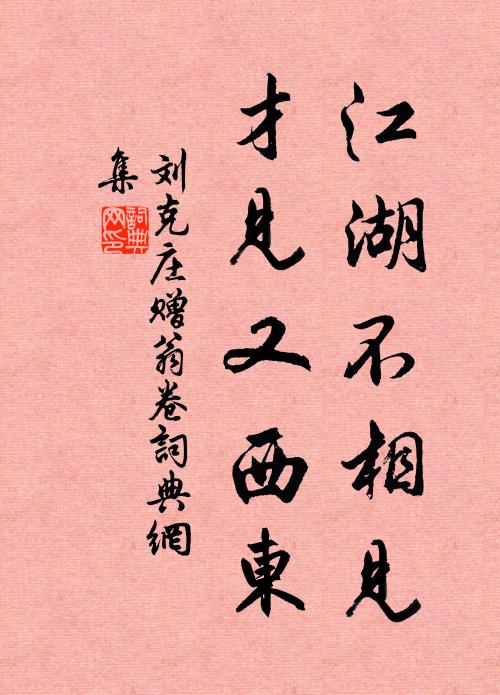 江湖不相見
才見又西東
刘克庄赠翁卷詞典網
集
詞典
网印